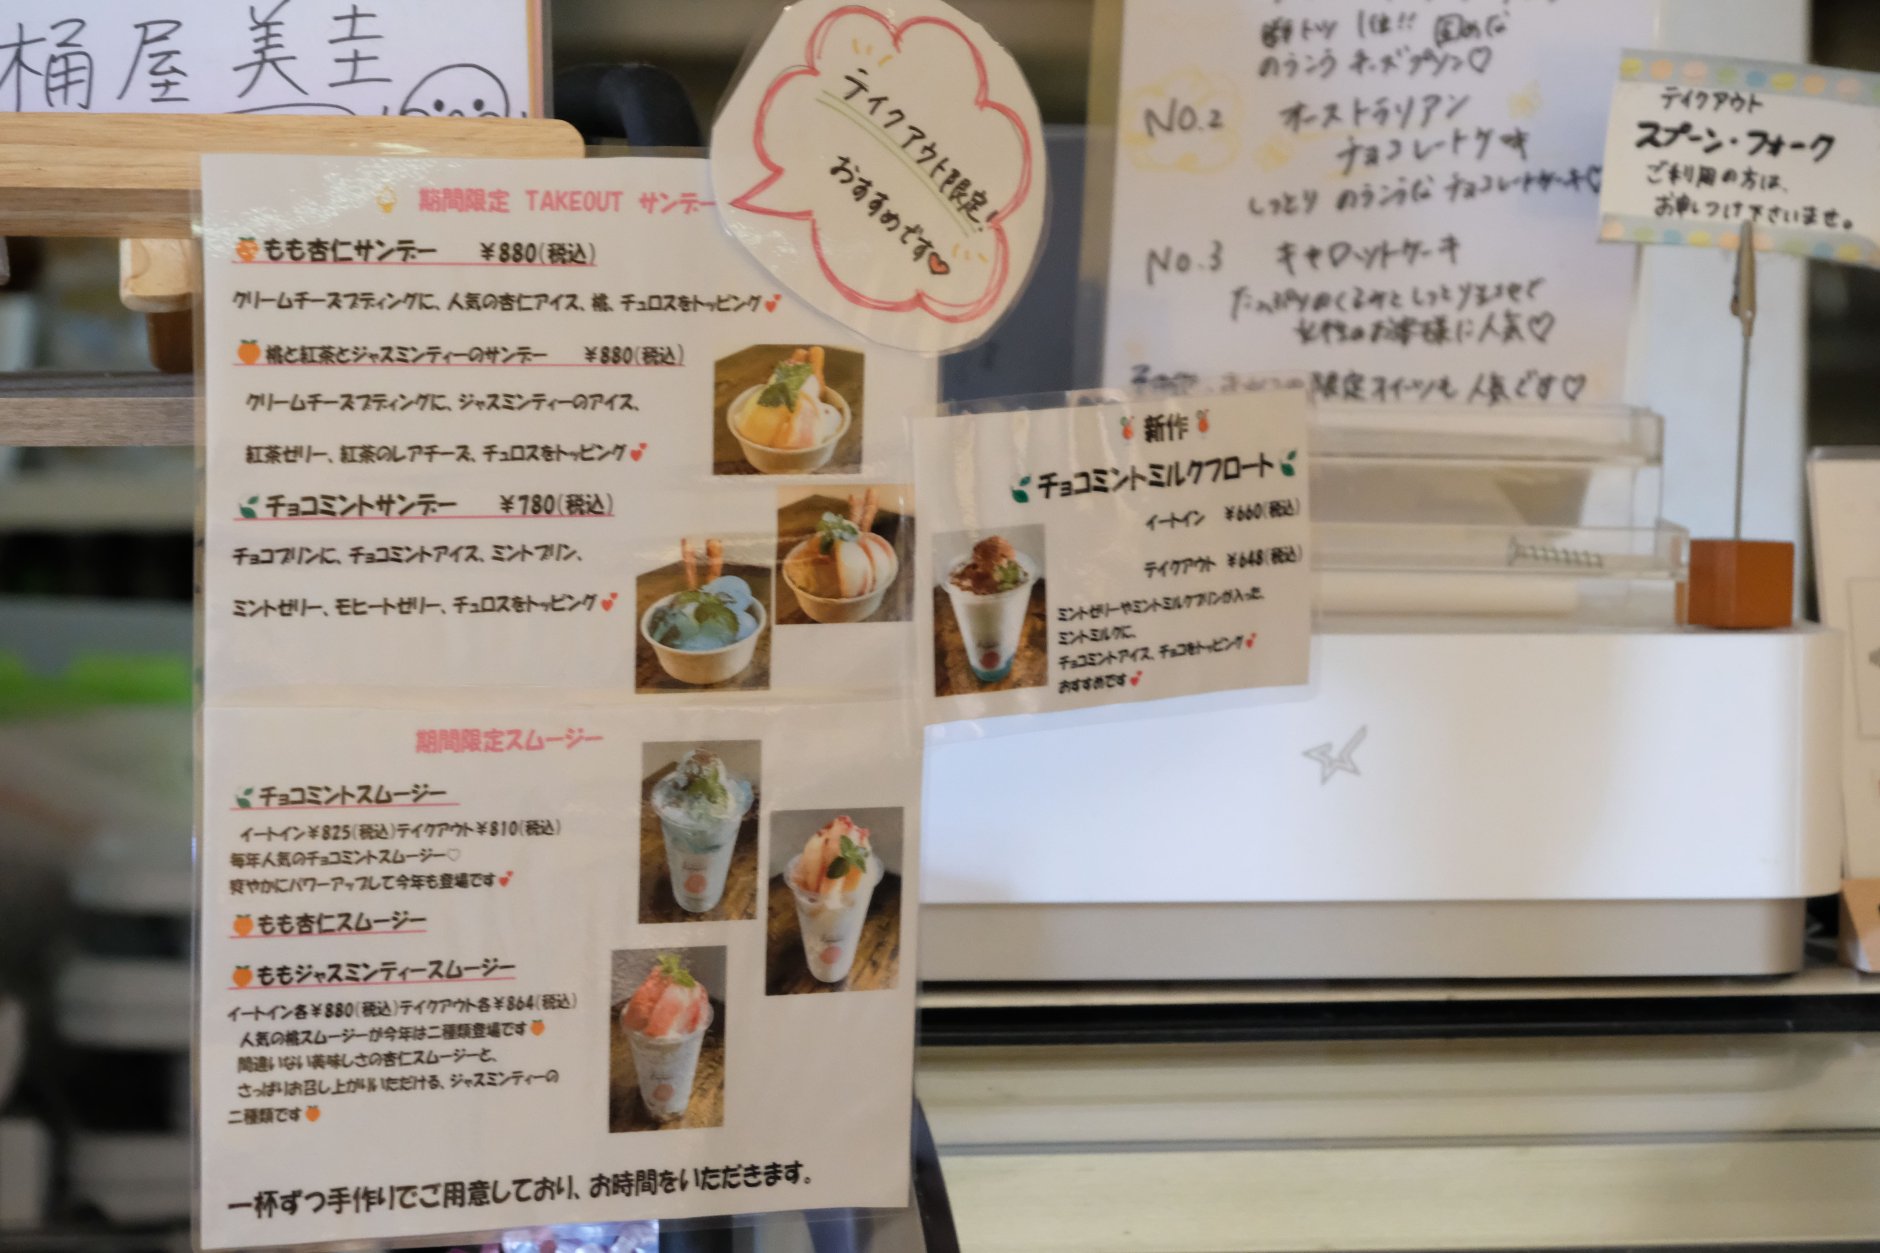 桶屋 美圭
テイクアウト限定!
おすすめです
期間限定 TAKEOUT サンデー
もも杏仁サンデー ¥880(税込)
クリームチーズプディングに、人気の杏仁アイス、桃、チュロスをトッピング💕
桃と紅茶とジャスミンティーのサンデー ¥880(税込)
クリームチーズプディングに、ジャスミンティーのアイス、
紅茶ゼリー、紅茶のレアチーズ、チュロスをトッピング💕
チョコミントサンデー ¥780(税込)
チョコプリンに、チョコミントアイス、ミントプリン、
ミントゼリー、モヒートゼリー、チュロスをトッピング💕
期間限定スムージー
チョコミントスムージー
イートイン¥825(税込)テイクアウト¥810(税込)
毎年人気のチョコミントスムージー♡
爽やかにパワーアップして今年も登場です💕
もも杏仁スムージー
ももジャスミンティースムージー
イートイン各¥880(税込)テイクアウト各¥864(税込)
人気の桃スムージーが今年は二種類登場です
間違いない美味しさの杏仁スムージーと、
さっぱりお召し上がりいただける、ジャスミンティーの
二種類です
一杯ずつ手作りでご用意しており、お時間をいただきます。
新作
チョコミントミルクフロート
イートイン ¥660(税込)
テイクアウト ¥648(税込)
ミントゼリーやミントミルクプリンが入った、
ミントミルクに、
チョコミントアイス、チョコをトッピング💕
おすすめです💕
1位!! 固めな
のうこう チーズプリン♡
NO.2 オーストラリアン
チョコレートケーキ
しっとり のうこうな チョコレートケーキ♡
NO.3 キャロットケーキ
たっぷりのくるみと しっとり生地で
女性のお客様に人気♡
限定スイーツも 人気です♡
テイクアウト
スプーン・フォーク
ご利用の方は、
お申しつけ下さいませ。